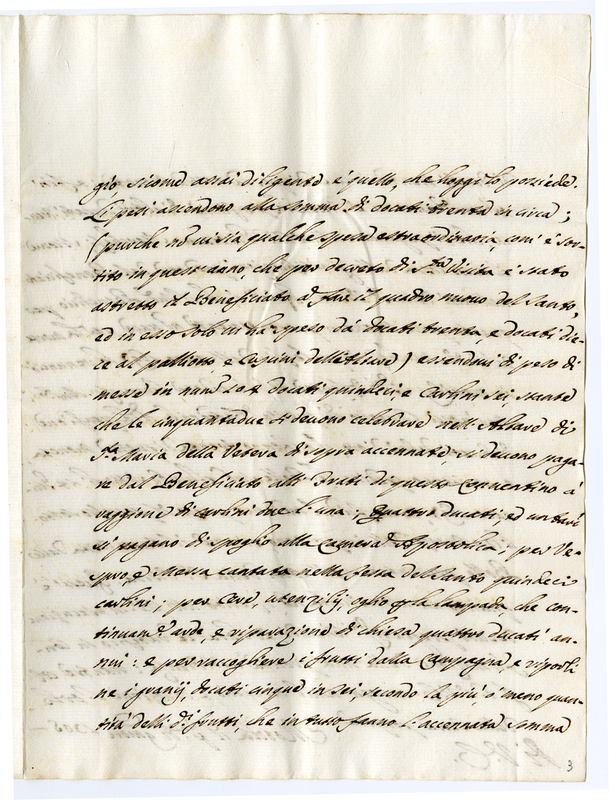 gio, sicome assai diligente è quello, che hoggi lo possiede.
Li pesi ascendono alla somma di docati trenta in circa;
(purche nõ vi sia qualche spesa estraordinaria, com' è sor-
tito in quest' anno, che per decreto di S.ta Visita è stato
astretto il Beneficiato a far il quadro nuovo del Santo,
ed in esso solo vi ha speso da ducati trenta, e docati die-
ce al palliotto, e cuscini dell'Altare) essendovi di peso di
messe in num.o 104 docati quindeci e Carlini sei, stante
che le cinquantadue si devono celebrare nell' Altare di
S.ta Maria della Vetera di sopra accennate, si devono paga-
re dal Beneficiato alli Frati di questo Conventino à
raggione di carlini due l'una; quattro ducati, ed un tarì
si pagano di spoglio alla Camera Apostolica; per Ve-
spro, e Messa cantata nella festa del Santo quindeci
carlini; per Cere, utenzilij, oglio p la lampada che con-
tinuam.te arde, e riparazione di chiesa quattro ducati an-
nui: e per raccogliere i frutti dalla Campagna, e riporli
ne i granij, docati cinque in sei, secondo la più, ò meno quan-
tità delli d.i frutti, che in tutto fanno l'accennata somma
3